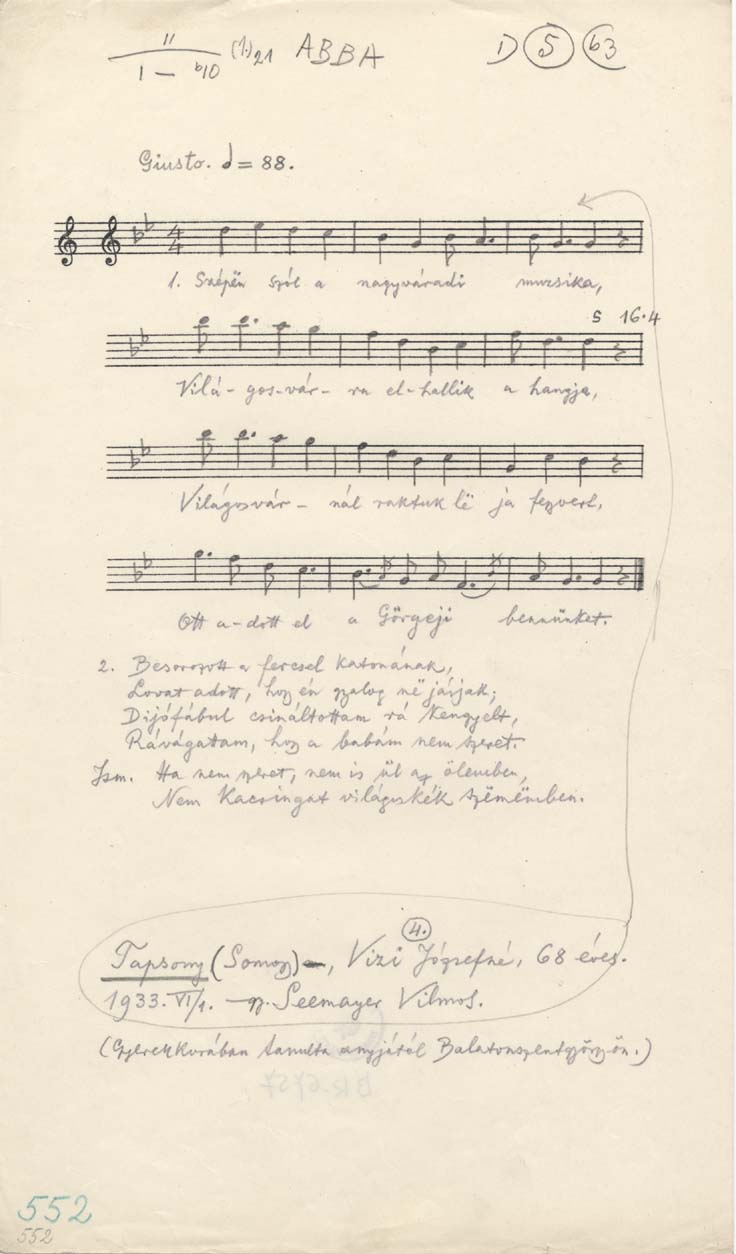 11 (1.) 21 ABBA 1) 5 b3
1 — b10
Giusto. = 88.
4
4
1. Szépën szól a nagyváradi muzsika,
5 16.4
Vilá-gos-vár-ra el-hallik a hangja,
Világosvár-nál raktuk lë ja fegyvert,
Ott a-dott el a Görgeji bennünket.
2. Besorozott a fercsel katonának,
Lovat adott, hogy én gyalog në járjak;
Dijófábul csináltottam rá kengyelt,
Rávágattam, hogy a babám nem szeret.
Ism. Ha nem szeret, nem is ül az ölemben,
Nem kacsingat világoskék szëmëmben.
4.
Tapsony (Somogy) —, Vizi Józsefné, 68 éves.
1933. VI/1. — gy. Seemayer Vilmos.
(Gyerekkorában tanulta anyjától Balatonszentgyörgyön.)
552
552